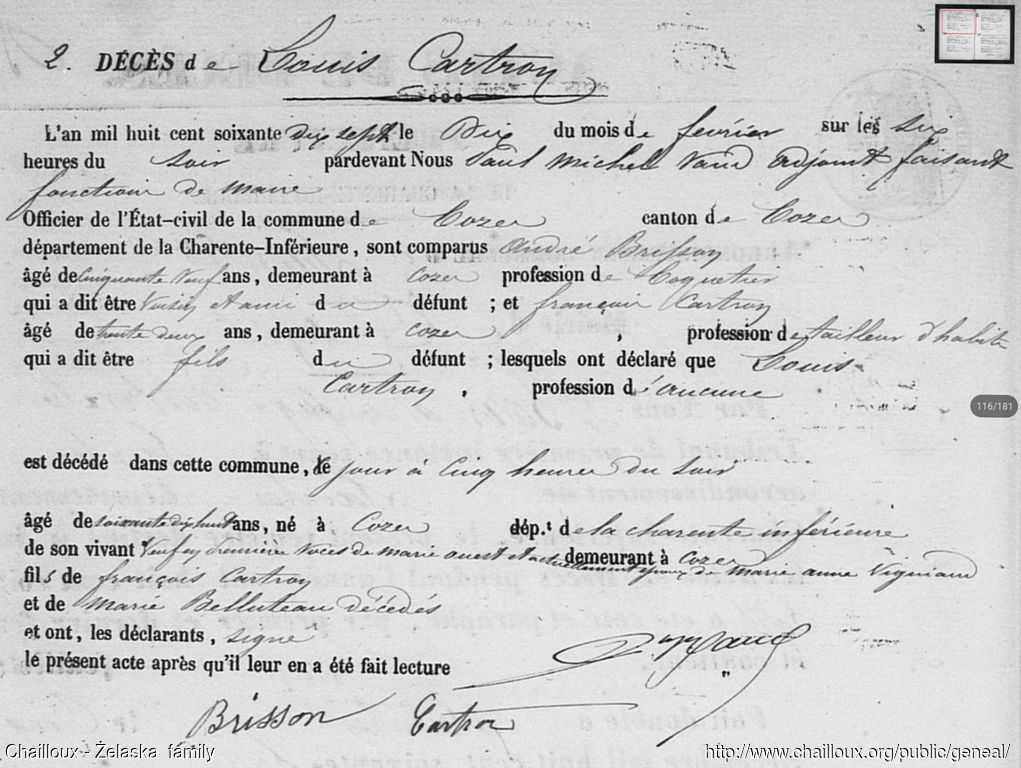 2. DÉCÈS de Louis Cartron
L'an mil huit cent soixante dix sept le Dix du mois de fevrier sur les six
heures du soir pardevant Nous Paul Michel adjoint faisant
fonction de maire
Officier de l'État-civil de la commune de Cozes canton de Cozes
département de la Charente-Inférieure, sont comparus André Brisson
âgé de cinquante neuf ans, demeurant à Cozes profession de Coquetier
qui a dit être voisin et ami du défunt ; et françois Cartron
âgé de trente deux ans, demeurant à Cozes, profession de tailleur d'habits
qui a dit être fils du défunt ; lesquels ont déclaré que Louis
Cartron, profession d'aucune
est décédé dans cette commune, ce jour à Cinq heures du soir
âgé de soixante dix huit ans, né à Cozes dép.t de la charente inférieure
de son vivant Veuf en premières Noces de marie ouest et actuellement époux de Marie anne Vigniaud demeurant à Cozes
fils de françois Cartron
et de Marie Belluteau décédés
et ont, les déclarants, signé
le présent acte après qu'il leur en a été fait lecture
Brisson Cartron
116/181
Chailloux - Żelaska family http://www.chailloux.org/public/geneal/